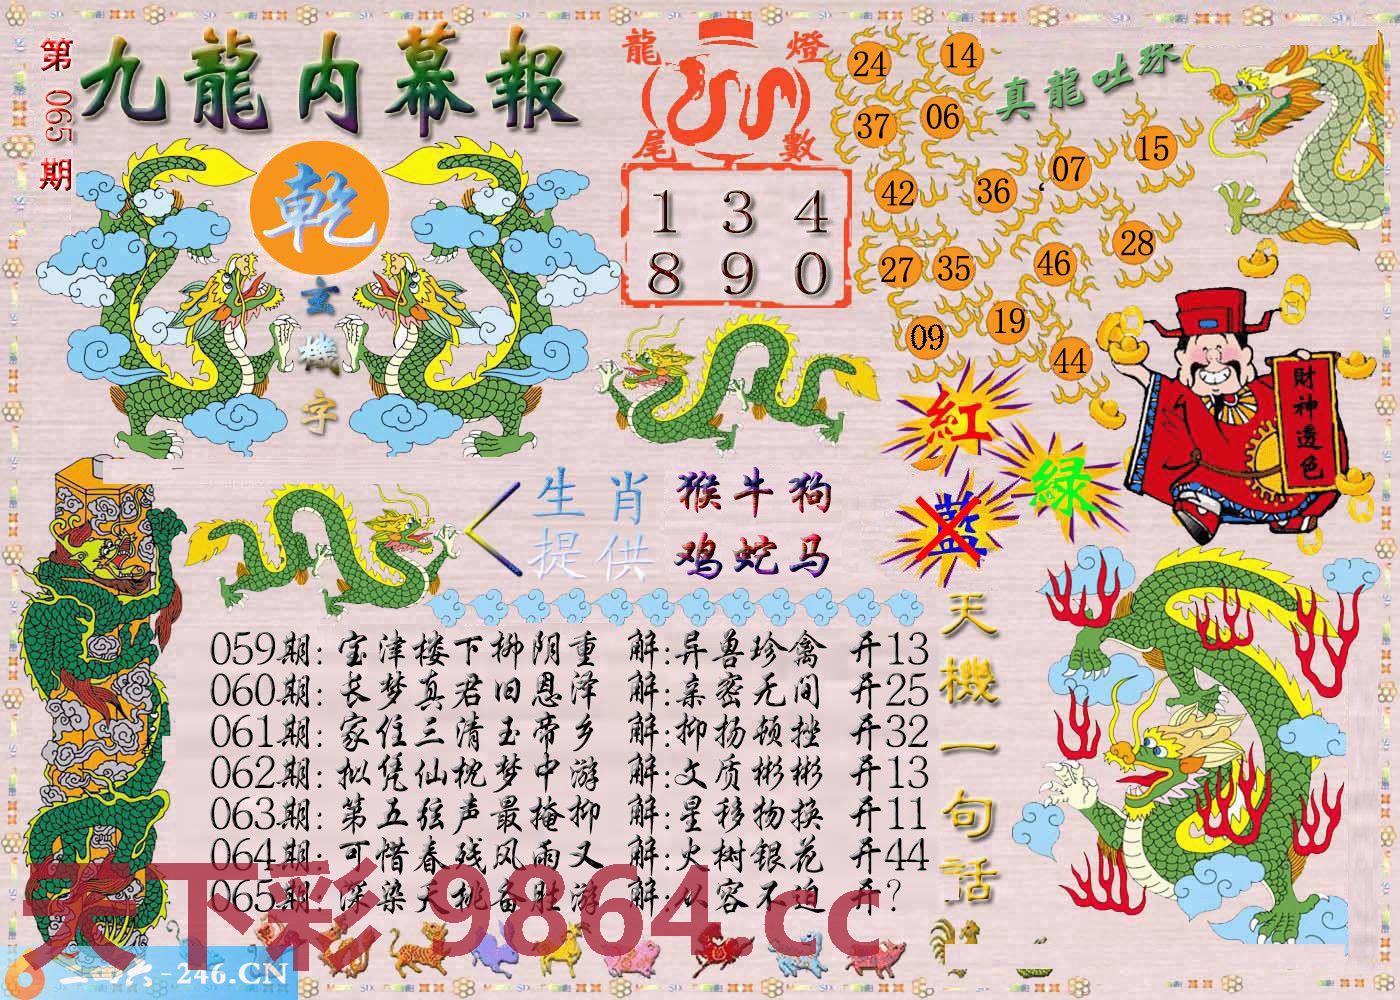 第065期
九龍内幕報
乾
玄機字
龍燈尾數
1 3 4
8 9 0
真龍吐珠
24 14
37 06
42 36 07 15
27 35 46 28
09 19 44
財神透色
紅
绿
藍
生肖提供
猴牛狗
鸡蛇马
天機一句話
059期: 宝津楼下柳阴重 解:异兽珍禽 开13
060期: 长梦真君旧恩泽 解:亲密无间 开25
061期: 家住三清玉帝乡 解:抑扬顿挫 开32
062期: 拟凭仙枕梦中游 解:文质彬彬 开13
063期: 第五弦声最掩抑 解:星移物换 开11
064期: 可惜春残风雨又 解:火树银花 开44
065期: 深染夭桃备胜游 解:从容不迫 开?
天下彩 9864.cc
二四六-246.CN